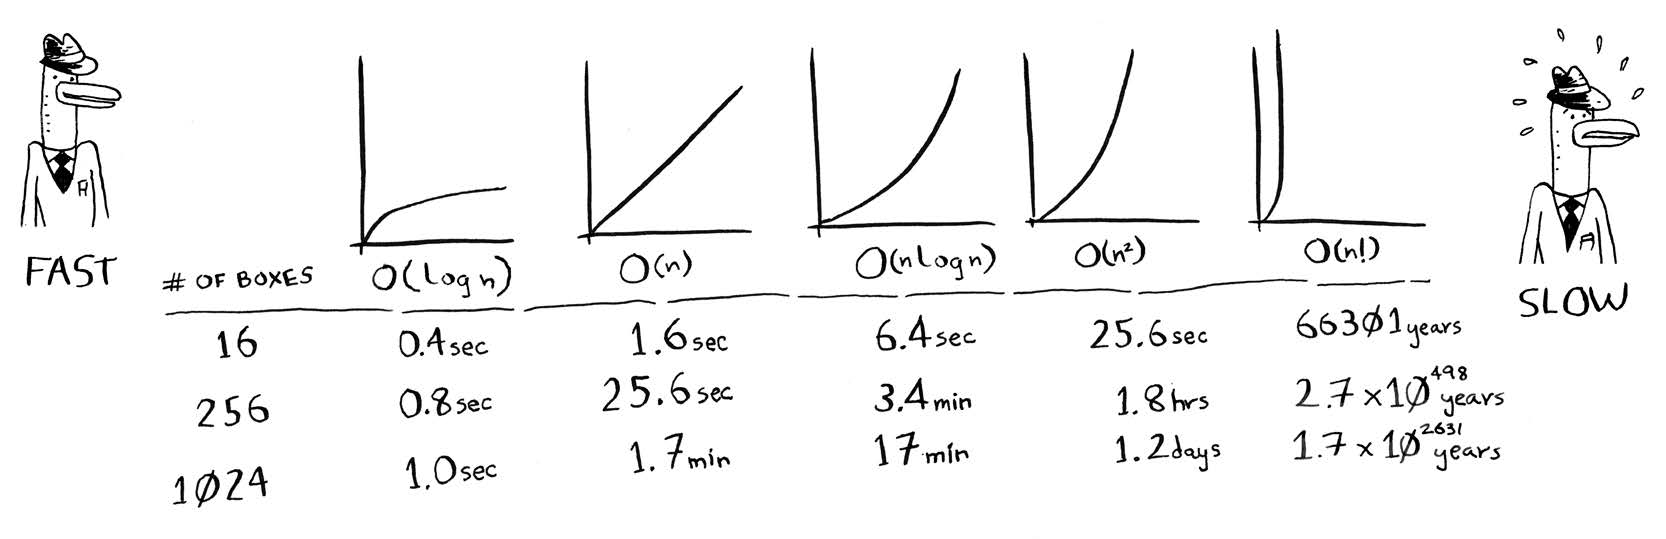 FAST
# OF BOXES O(log n) O(n) O(n log n) O(n²) O(n!)
SLOW
16 0.4 sec 1.6 sec 6.4 sec 25.6 sec 663Ø1 years
256 0.8 sec 25.6 sec 3.4 min 1.8 hrs 2.7 x 1Ø⁴⁹⁸ years
1Ø24 1.0 sec 1.7 min 17 min 1.2 days 1.7 x 1Ø²⁶³¹ years